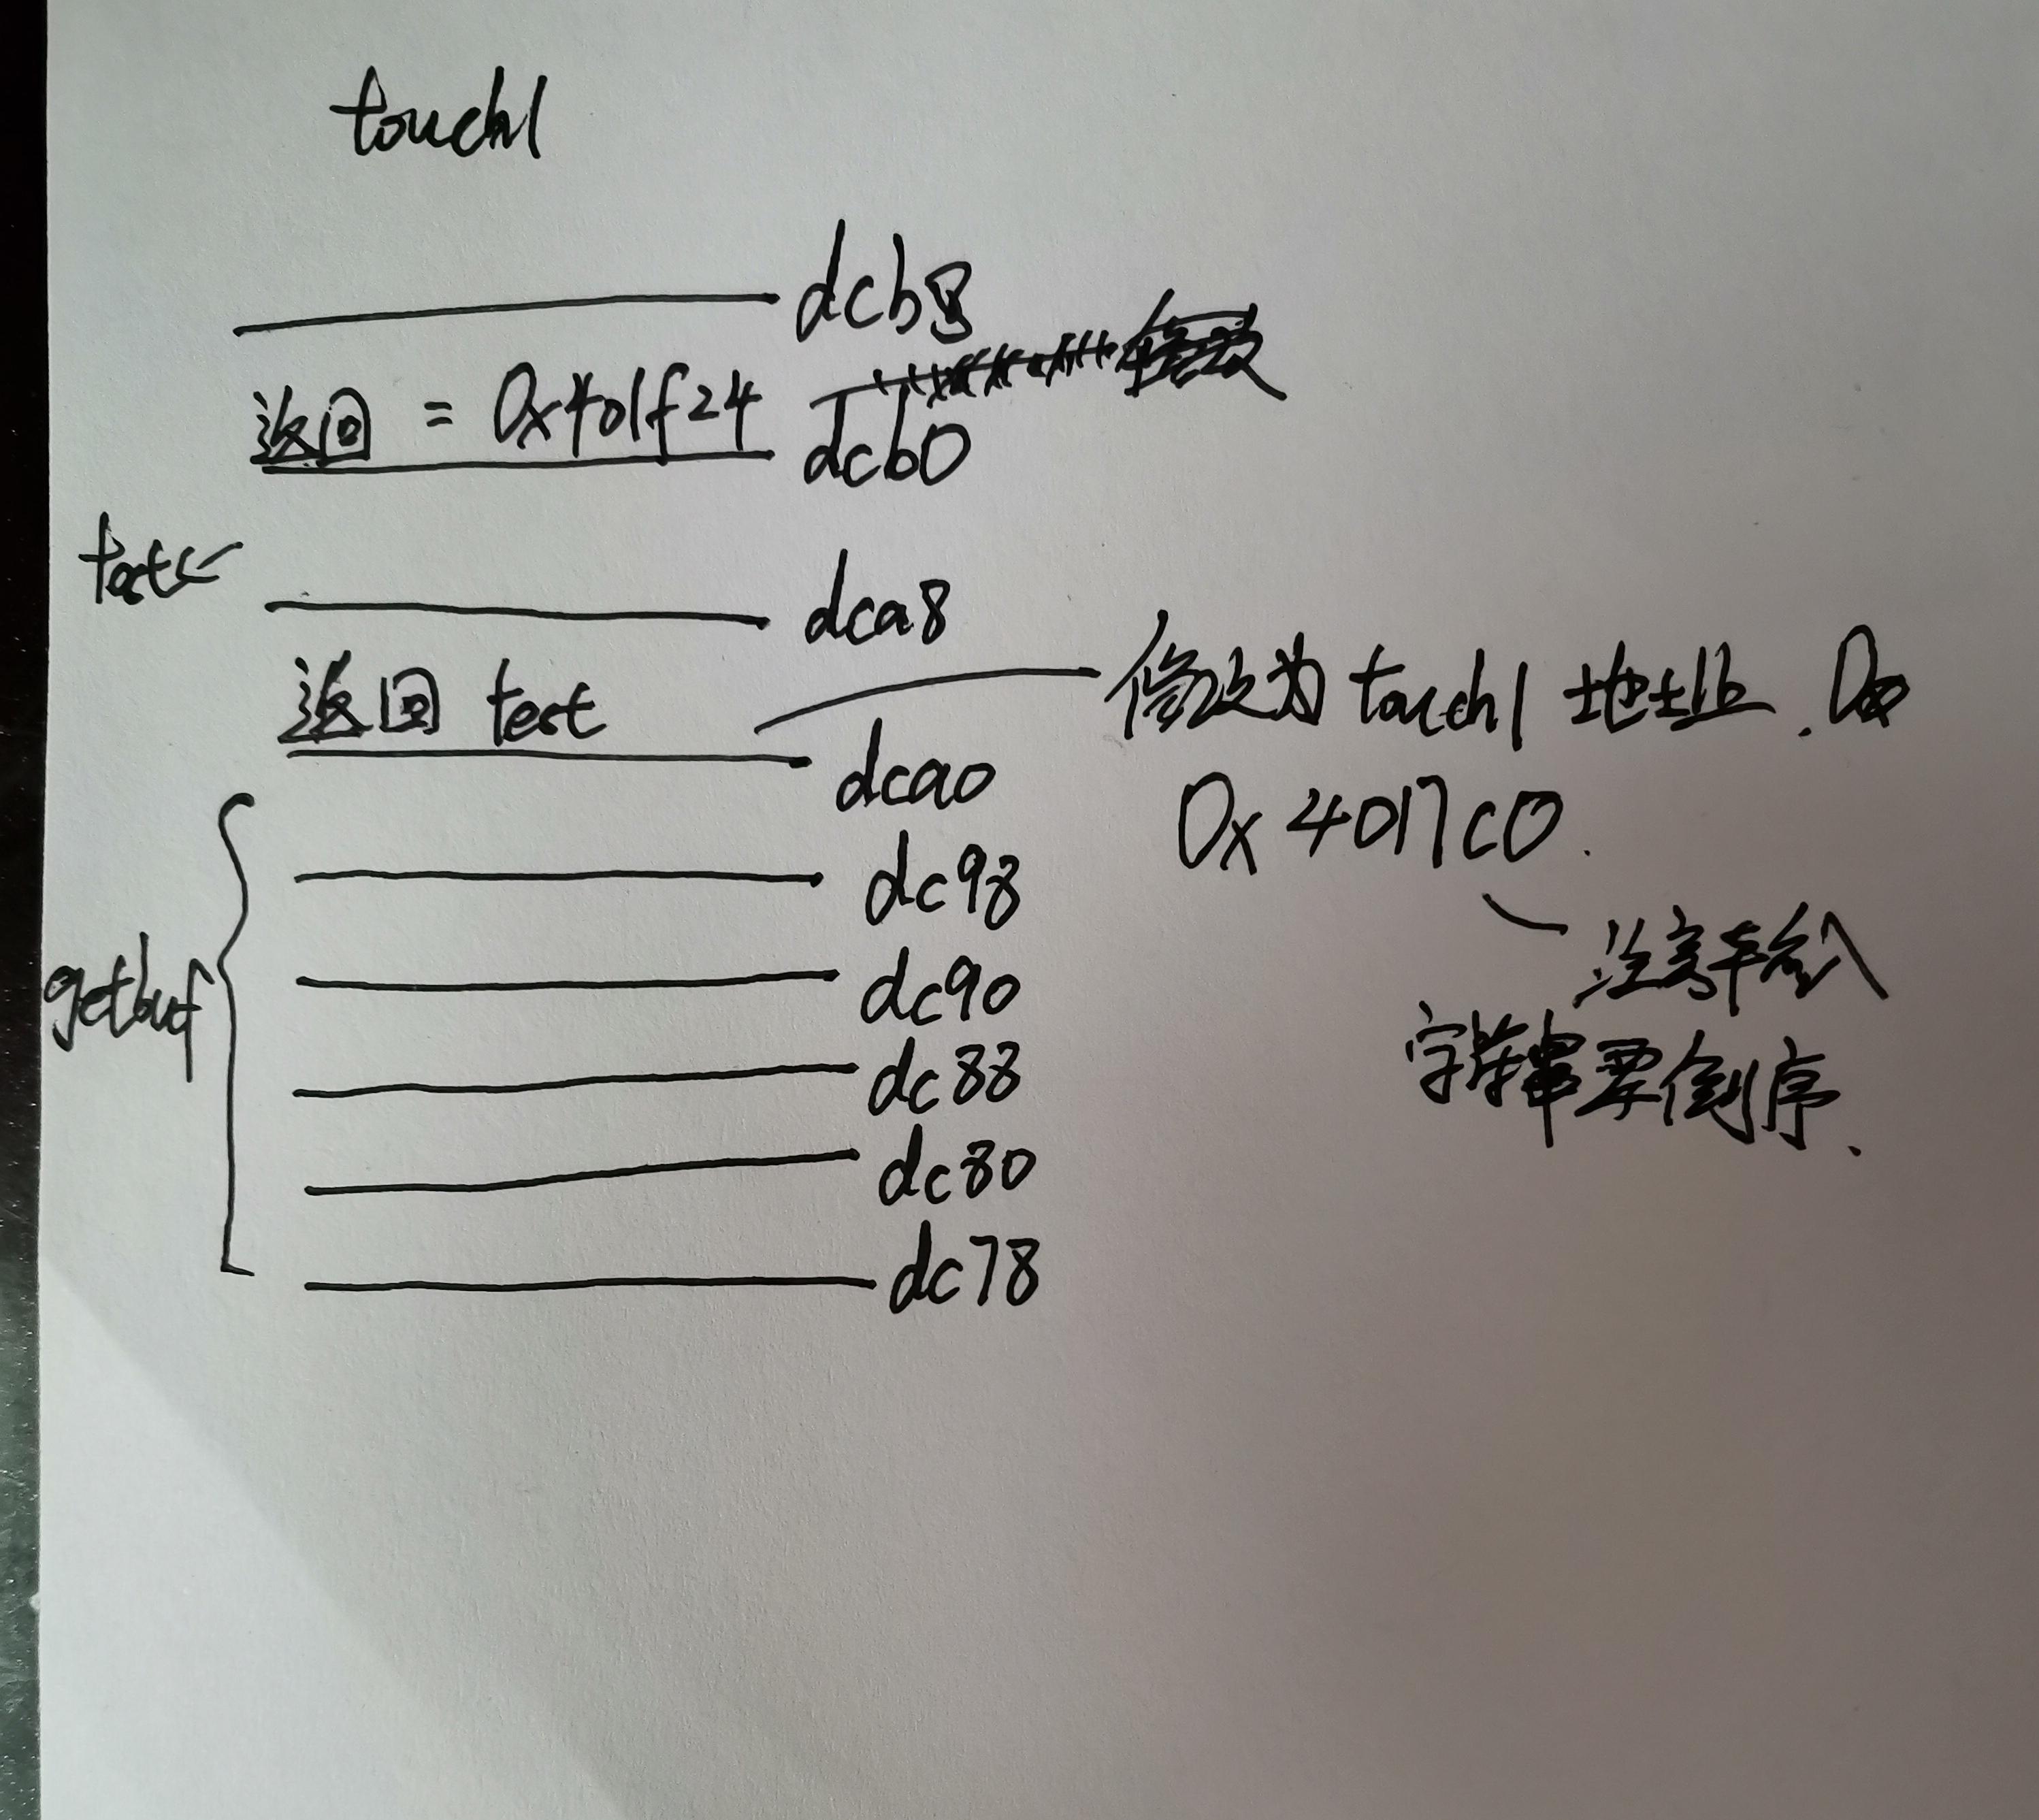 touch1
dcb8
返回 = 0x401f24
dcb0
test
dca8
返回 test
修改为 touch1 地址. 0x
dca0
0x4017c0.
dc98
注意输入
getbuf
dc90
字符串要倒序.
dc88
dc80
dc78